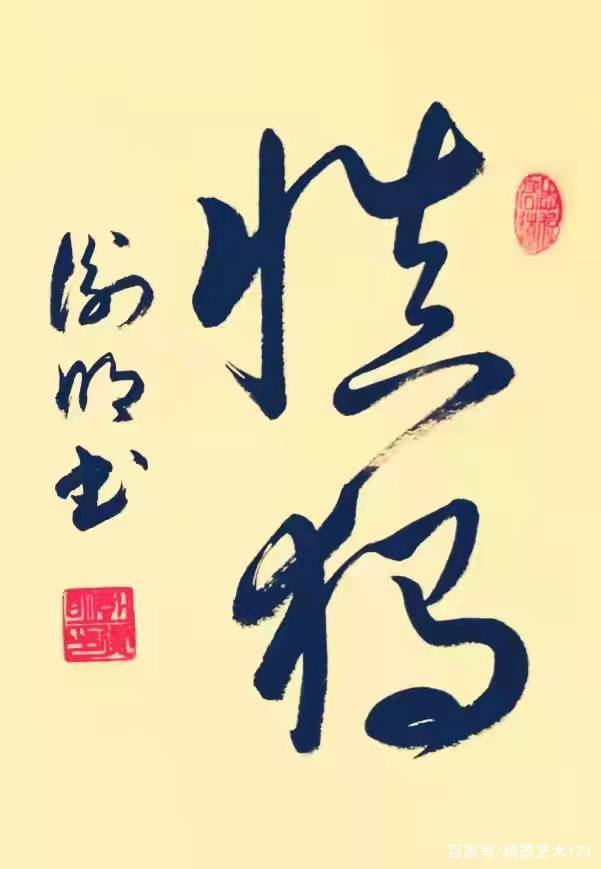 慎獨
明书
百家号/楮墨艺术123